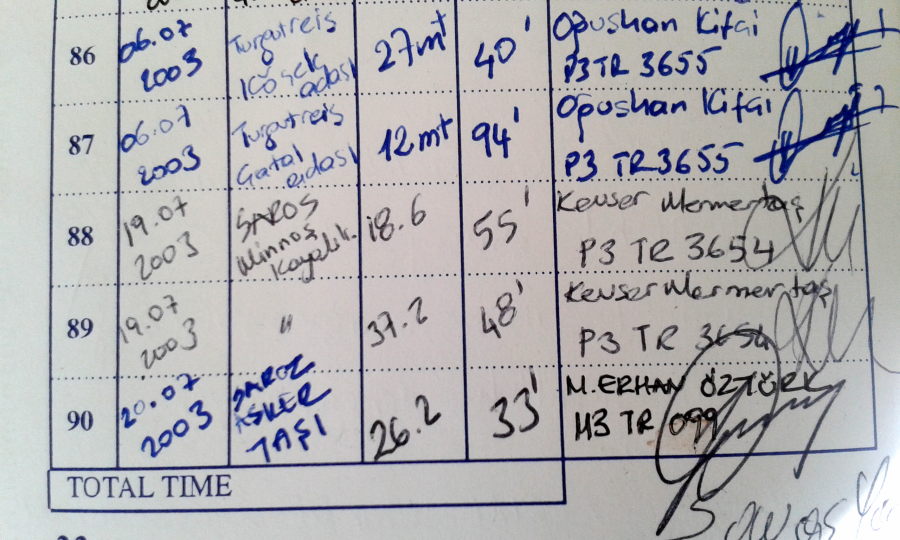 86 06.07 2003 Turgutreis Köçek adası 27mt 40' Oğushan Kifai P3 TR 3655
87 06.07 2003 Turgutreis Çatal adası 12mt 94' Oğushan Kifai P3 TR 3655
88 19.07 2003 SAROS Minnoş Kayalık. 18.6 55' Kevser Mermertaş P3 TR 3654
89 19.07 2003 " 37.2 48' Kevser Mermertaş P3 TR 3654
90 20.07 2003 SAROZ ASKER TAŞI 26.2 33' M.ERHAN ÖZTÜRK M3 TR 099
TOTAL TIME